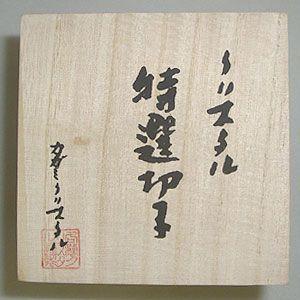 クリスタル
特選切子
カガミクリスタル